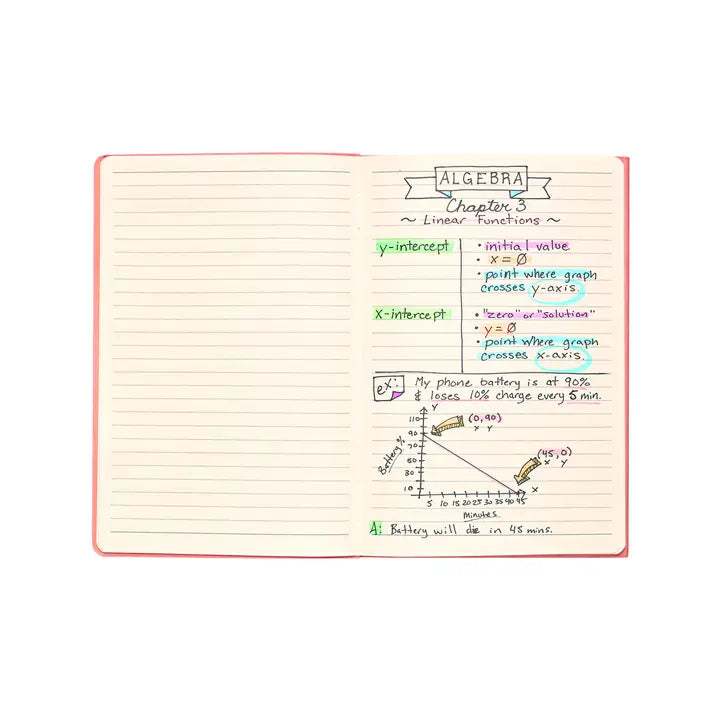 ALGEBRA
Chapter 3
~ Linear Functions ~
y-intercept
• initial value
• x = Ø
• point where graph
crosses y-axis.
X-intercept
• "zero" or "solution"
• y = Ø
• point where graph
crosses x-axis.
ex: My phone battery is at 90%
& loses 10% charge every 5 min.
Y
110
90
70
50
30
10
Battery %
(0, 90)
x y
(45, 0)
x y
x
5 10 15 20 25 30 35 40 45
Minutes
A: Battery will die in 45 mins.